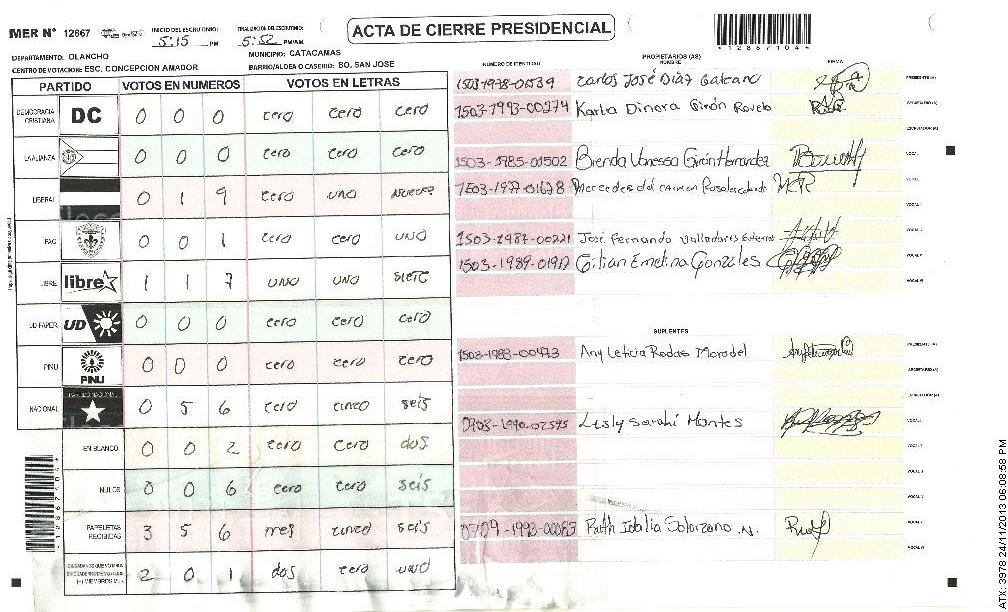 MER N° 12867
INICIO DEL ESCRUTINIO: 5:15 PM
FINALIZACION DEL ESCRUTINIO: 5:52 PM/AM
ACTA DE CIERRE PRESIDENCIAL
DEPARTAMENTO: OLANCHO
MUNICIPIO: CATACAMAS
CENTRO DE VOTACION: ESC. CONCEPCION AMADOR
BARRIO/ALDEA O CASERIO: BO. SAN JOSE
PARTIDO VOTOS EN NUMEROS VOTOS EN LETRAS
DEMOCRACIA CRISTIANA DC 0 0 0 cero cero cero
LA ALIANZA 0 0 0 cero cero cero
LIBERAL 0 1 9 cero uno nueve
PAC 0 0 1 cero cero uno
LIBRE libre 1 1 7 uno uno siete
UD FAPER UD 0 0 0 cero cero cero
PINU PINU 0 0 0 cero cero cero
NACIONAL PARTIDO NACIONAL 0 5 6 cero cinco seis
EN BLANCO 0 0 2 cero cero dos
NULOS 0 0 6 cero cero seis
PAPELETAS RECIBIDAS 3 5 6 tres cinco seis
CIUDADANOS QUE VOTARON 2 0 1 dos cero uno
NUMERO DE IDENTIDAD PROPIETARIOS (AS) NOMBRE FIRMA
1503-1978-01539 Carlos José Díaz PRESIDENTE (A)
1503-1993-00274 Karla Dinora Girón Rovelo SECRETARIO (A)
ESCRUTADOR (A)
1503-1985-01502 Brenda Vanessa Girón Hernandez VOCAL I
1503-1977-01678 Mercedes del carmen
VOCAL
1503-1987-00221 José Fernando Valladares
1503-1989-01917 Gilian Emelina Gonzales
VOCAL VI
SUPLENTES
1503-1983-00473 Any Leticia Rodas Moradel PRESIDENTE (A)
SECRETARIO (A)
ESCRUTADOR (A)
0703-1990-02595 Lesly Sarahí Montes
0709-1992-00085 Ruth Idalia Solorzano .N.
VOCAL VI
*12867104*
ATX: 3978 24/11/2013 06:08:58 PM